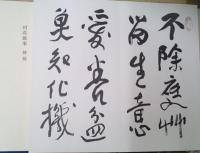 不除庭艸
留生意
愛養盆
魚知化機